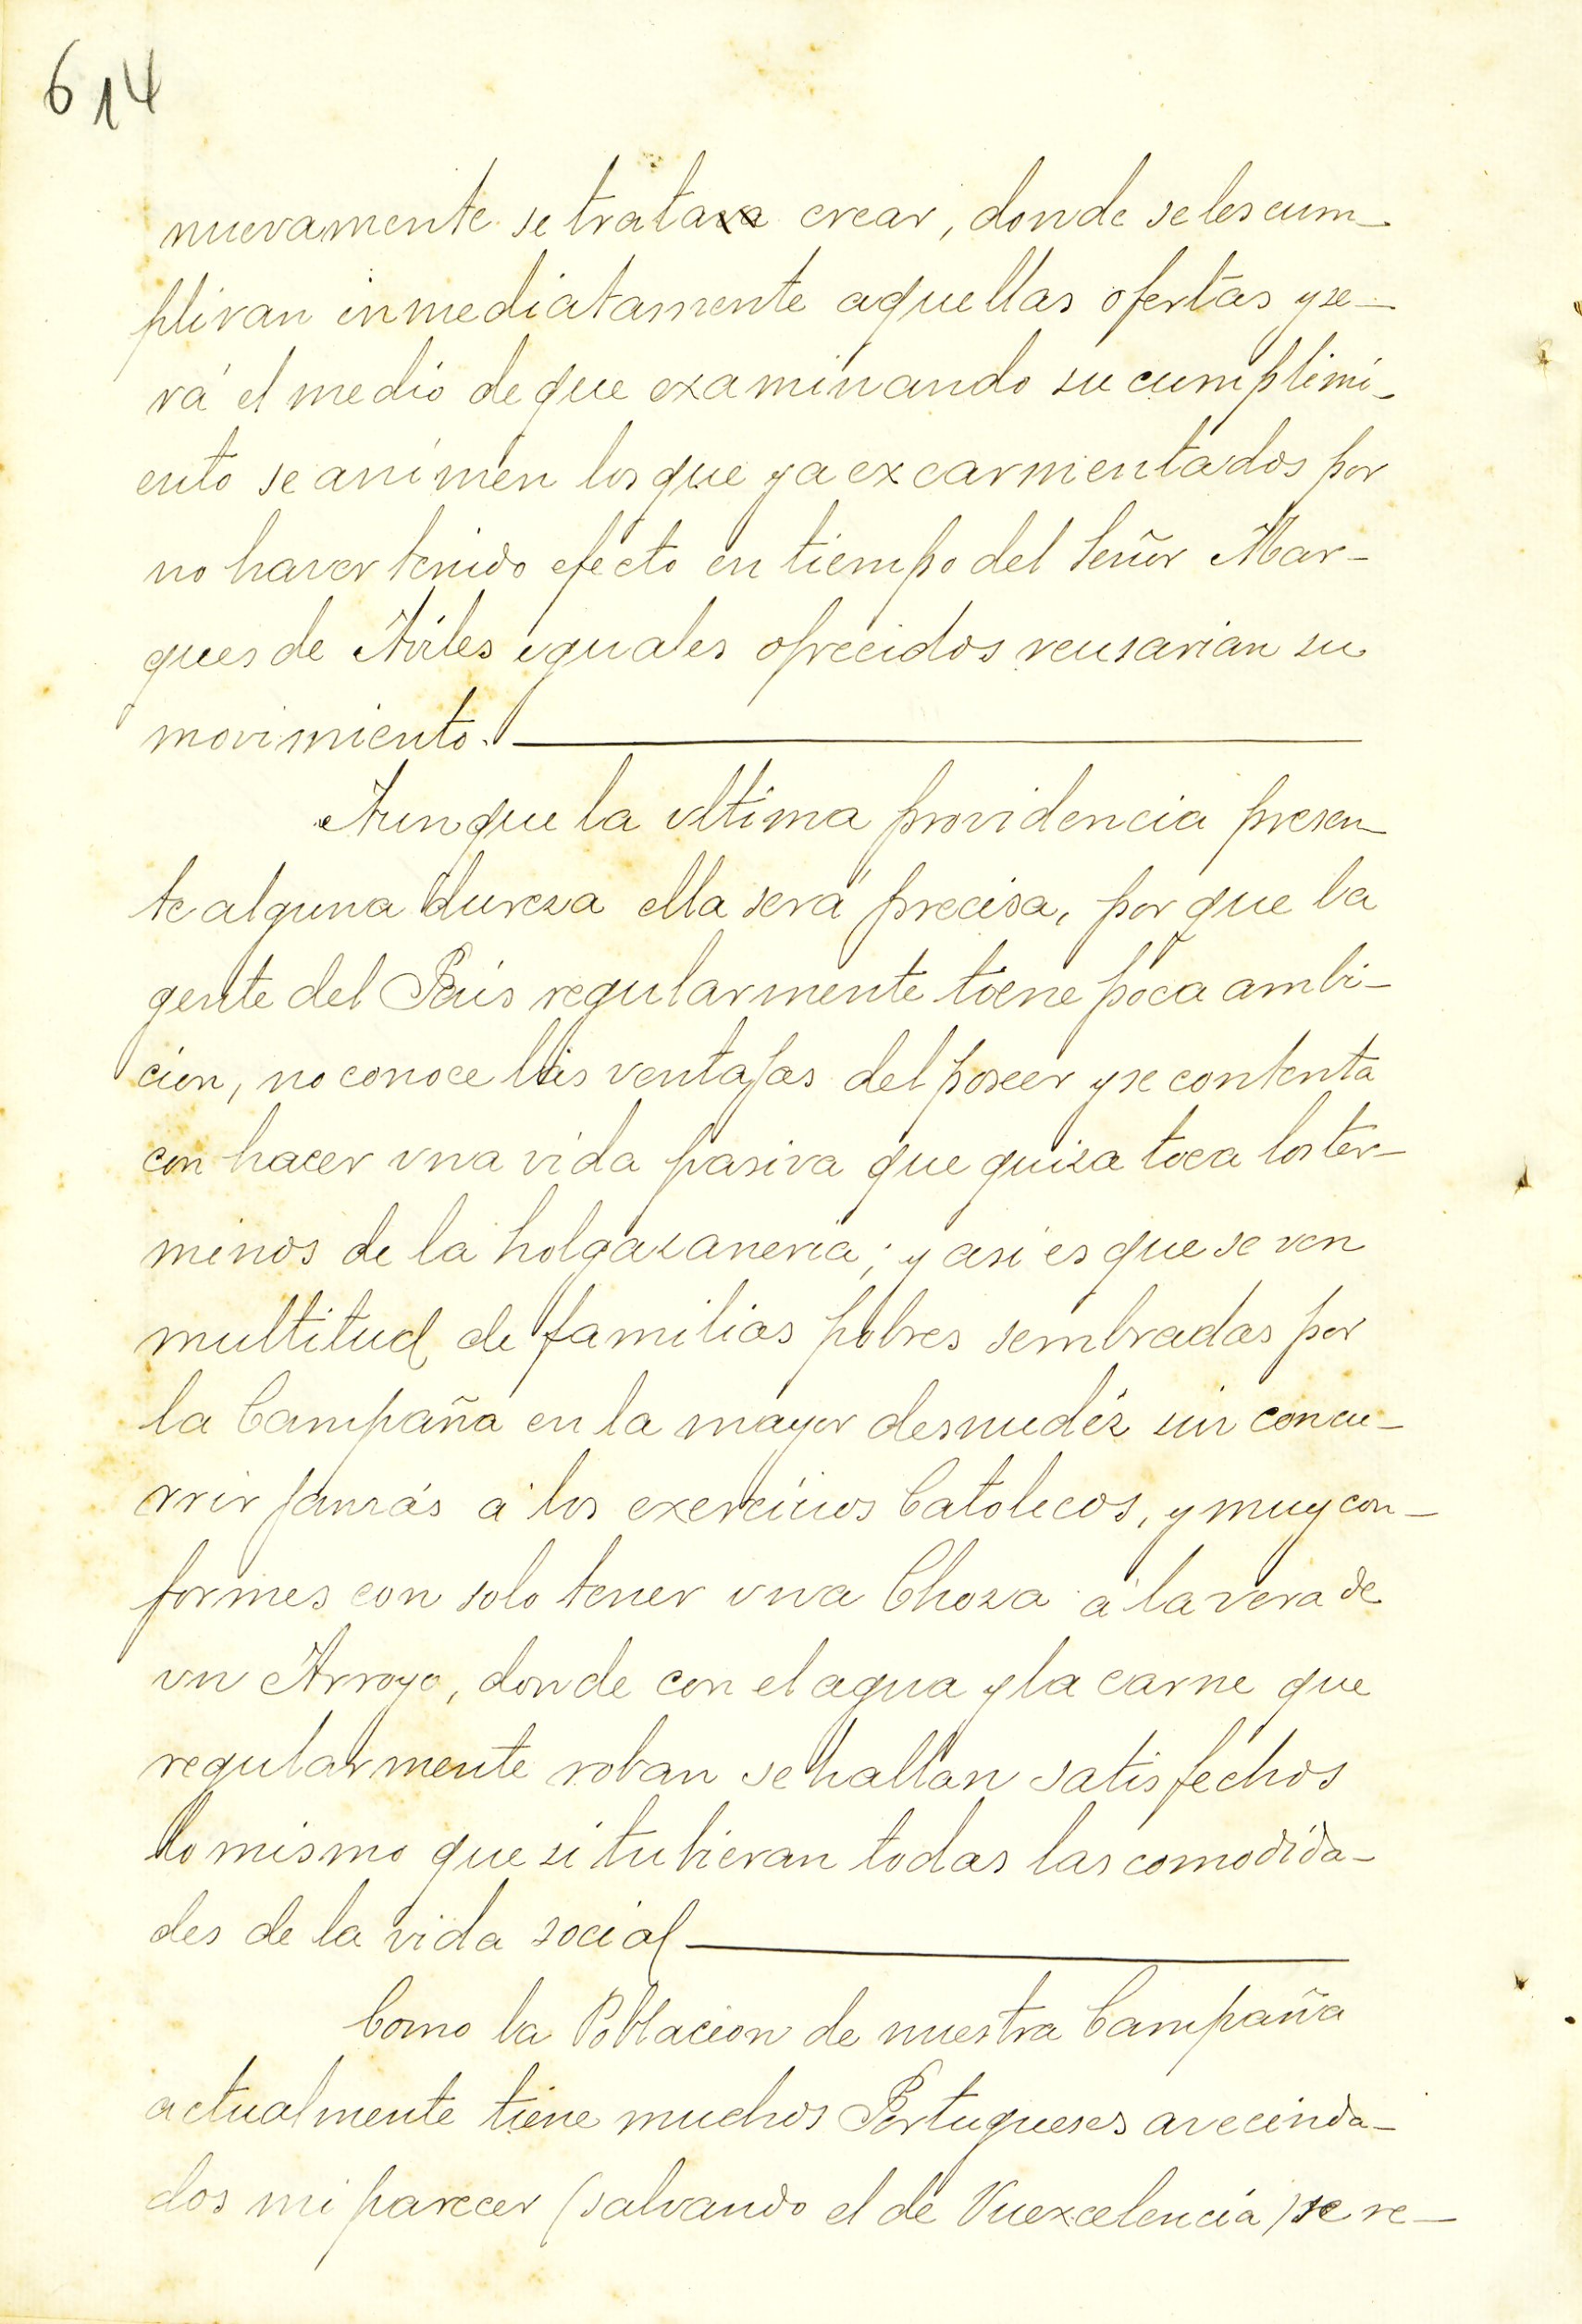 614
nuevamente se trata crear, donde se les cum-
pliran inmediatamente aquellas ofertas y se-
rá el medio de que examinando su cumplimi-
ento se animen los que ya excarmentados por
no haver tenido efecto en tiempo del Señor Mar-
ques de Aviles iguales ofrecidos reusarian su
movimiento.
Aunque la ultima providencia presen-
te alguna dureza ella será precisa, por que la
gente del Pais regularmente tiene poca ambi-
cion, no conoce las ventajas del poseer y se contenta
con hacer vna vida pasiva que quiza toca los ter-
minos de la holgazaneria; y asi es que se ven
multitud de familias pobres sembradas por
la Campaña en la mayor desnudéz sin concu-
rrir jamás á los exercicios Catolicos, y muy con-
formes con solo tener vna Choza á la vera de
vn Arroyo, donde con el agua y la carne que
regularmente roban se hallan satisfechos
lo mismo que si tubieran todas las comodida-
des de la vida social
Como la Poblacion de nuestra Campaña
actualmente tiene muchos Portugueses avecinda-
dos mi parecer (salvando el de Vuexcelencia) se re-